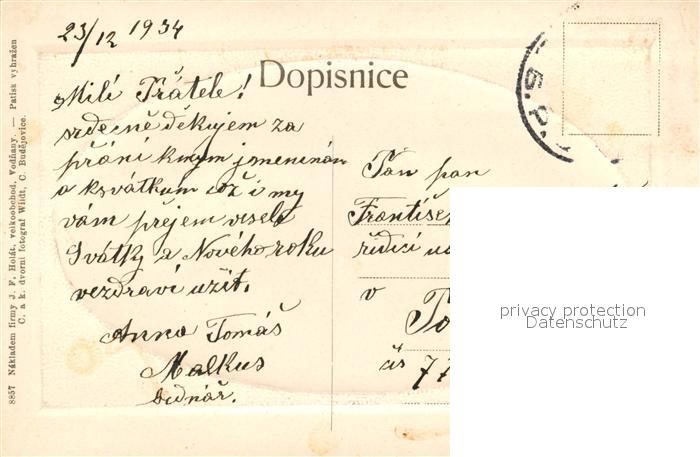 23/12 1934
Dopisnice
Milí Přátele!
srdečně děkujem za
přání k mym jmeninám
a k svátkum což i my
vám přejem veselé
Svátky a Nového roku
vezdraví užít.
Anna Tomáš
Malkus
Pan pan
Františe
řídící
v
čís 77
8857 Nákladem firmy J. F. Holát, velkoobchod, Vodňany. — Patisk vyhražen
C. a k. dvorní fotograf Wildt, Č. Budějovice.
privacy protection
Datenschutz